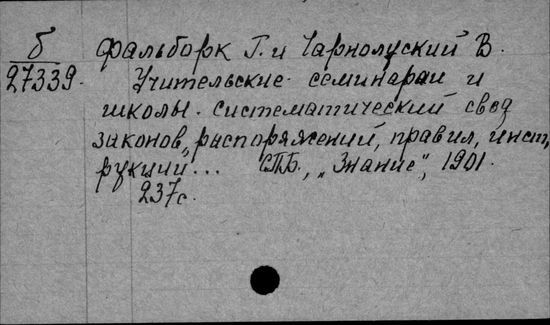 б фальборк Г. и Чарнолуский В.
27339. Учительские семинарии и
школы. систематический свод
законов, распоряжений, правил, инст,
рукций... СПБ., „Знание", 1901.
237с.